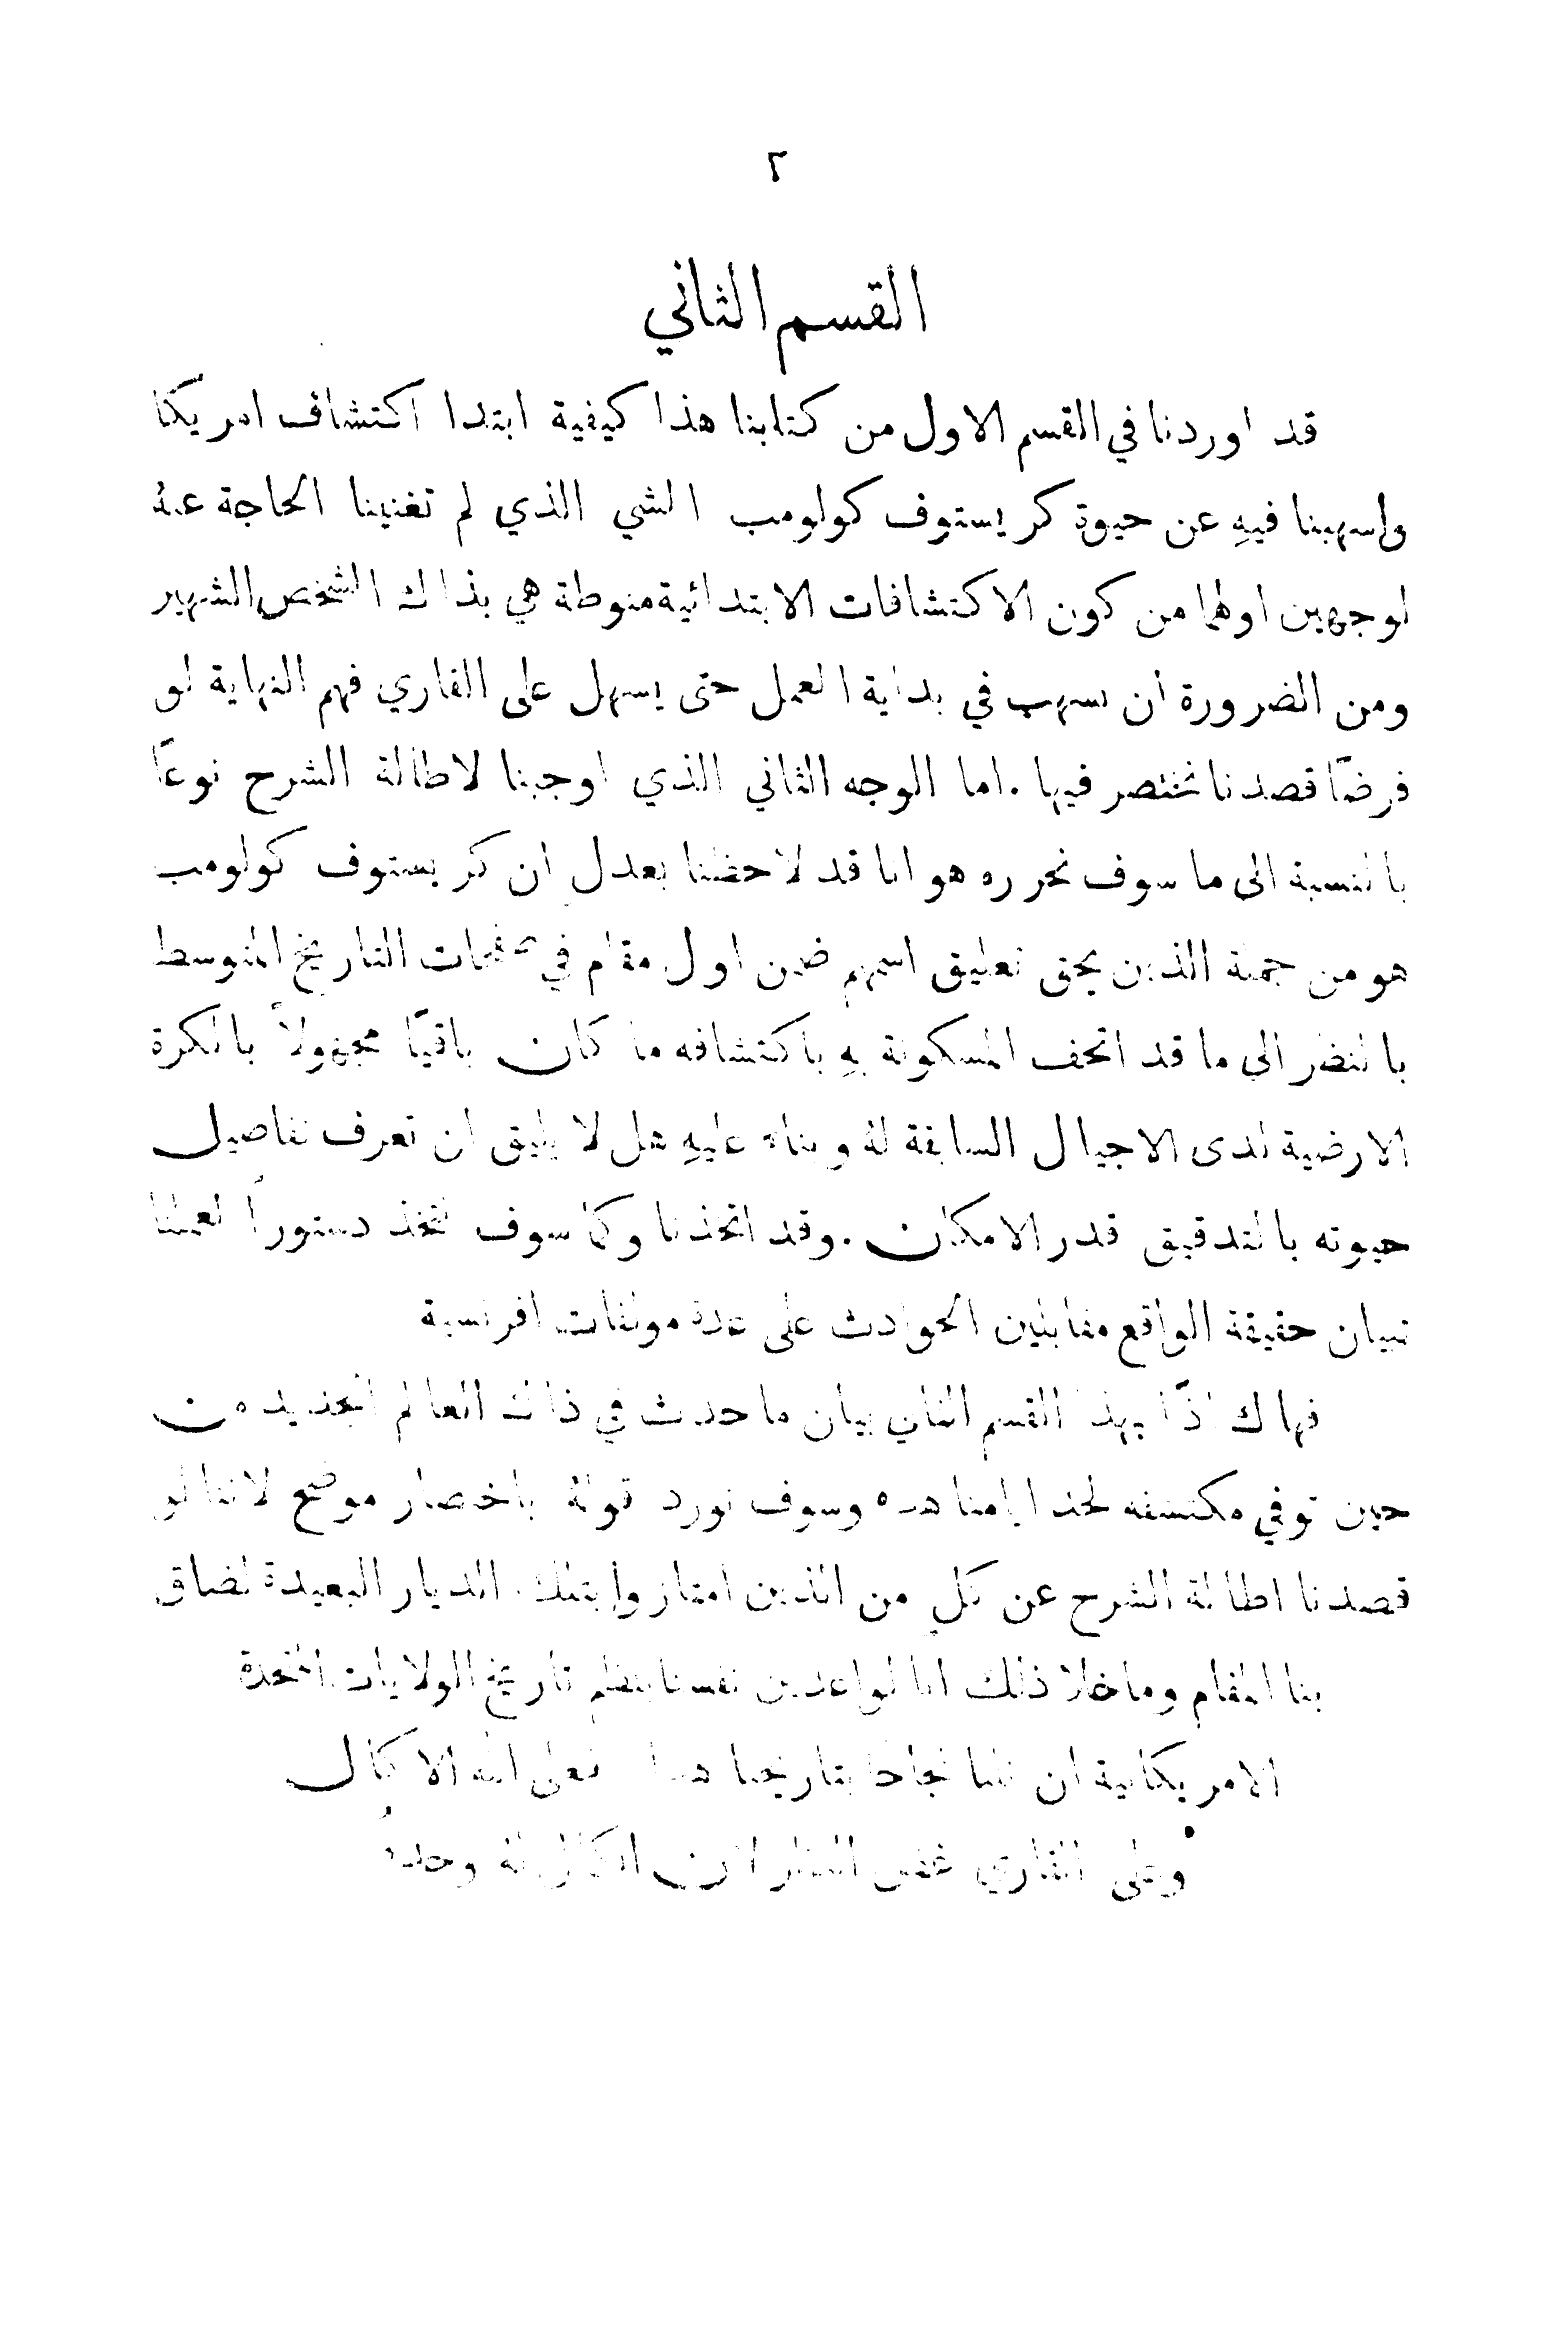 ٢
القسم الثاني
قد اوردنا في القسم الاول من كتابنا هذا كيفية ابتدا اكتشاف امريكا
واسهبنا فيهِ عن حيوة كريستوف كولومب الشي الذي لم تغنينا الحاجة عنهُ
لوجهين اولهما من كون الاكتشافات الابتدائية منوطة هي بذاك الشخص الشهير
ومن الضرورة ان نسهب في بداية العمل حتى يسهل على القاري فهم النهاية لو
فرضًا قصدنا نختصر فيها . اما الوجه الثاني الذي اوجبنا لاطالة الشرح نوعًا
بالنسبة الى ما سوف نحرره هو انا قد لاحظنا بعدل ان كريستوف كولومب
هو من جملة الذين يحق تعليق اسمهم ضمن اول مقام في صفحات التاريخ المتوسط
بالنظر الى ما قد اتحف المسكونة بهِ باكتشافه ما كان باقيًا مجهولاً بالكرة
الارضية لدى الاجيال السابقة لهُ وبناء عليهِ هل لا يليق ان تعرف تفاصيل
حيوته بالتدقيق قدر الامكان . وقد اتخذنا وكما سوف نتخذ دستوراً لعملنا
تبيان حقيقة الواقع مقابلين الحوادث على عدة مولفات افرنسية
فهاك اذًا بهذا القسم الثاني بيان ما حدث في ذاك العالم الجديد من
حين توفي مكتشفه لحد ايامنا هذه وسوف نورد قولهُ باختصار موضح لاننا لو
قصدنا اطالة الشرح عن كلٍ من الذين امتازوا بتلك الديار البعيدة لضاق
بنا المقام وما خلا ذلك انا لواعدين نفسنا بنظم تاريخ الولايات المتحدة
الامريكانية ان نلنا نجاحًا بتاريخنا هذا فعلى الله الاتكال
وعلى القاري غض النظر لان الكمال لهُ وحدهُ